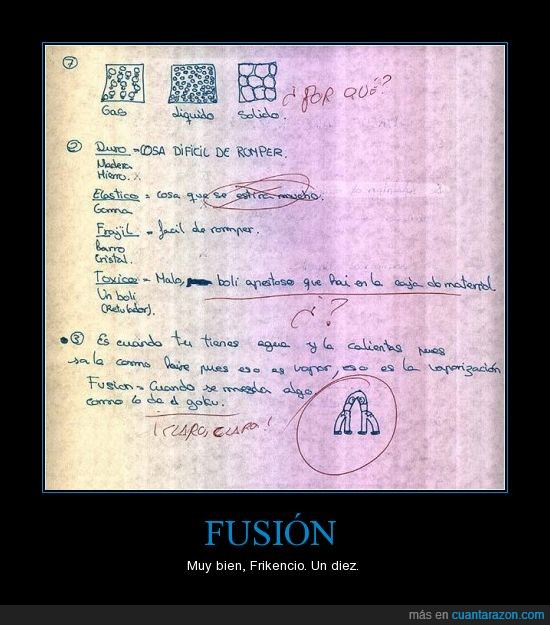 1
Gas liquido Solido. ¿POR QUÉ?
2 Duro = COSA DIFICIL DE ROMPER.
Madera
Hierro. X
Elastico = cosa que se estira mucho.
Goma
Frajil = facil de rormper.
Barro
Cristal.
Toxico = Malo, boli apestoso que hai en la caja do material
Un boli
(Rotulador).
¿?
3 Es cuando tu tienes agua y la calientas pues
sale como haire pues eso es vapor, eso es la vaporización
Fusion = Cuando se mezcla algo.
como lo de el goku.
¡CLARO, CLARO!
FUSIÓN
Muy bien, Frikencio. Un diez.
más en cuantarazon.com